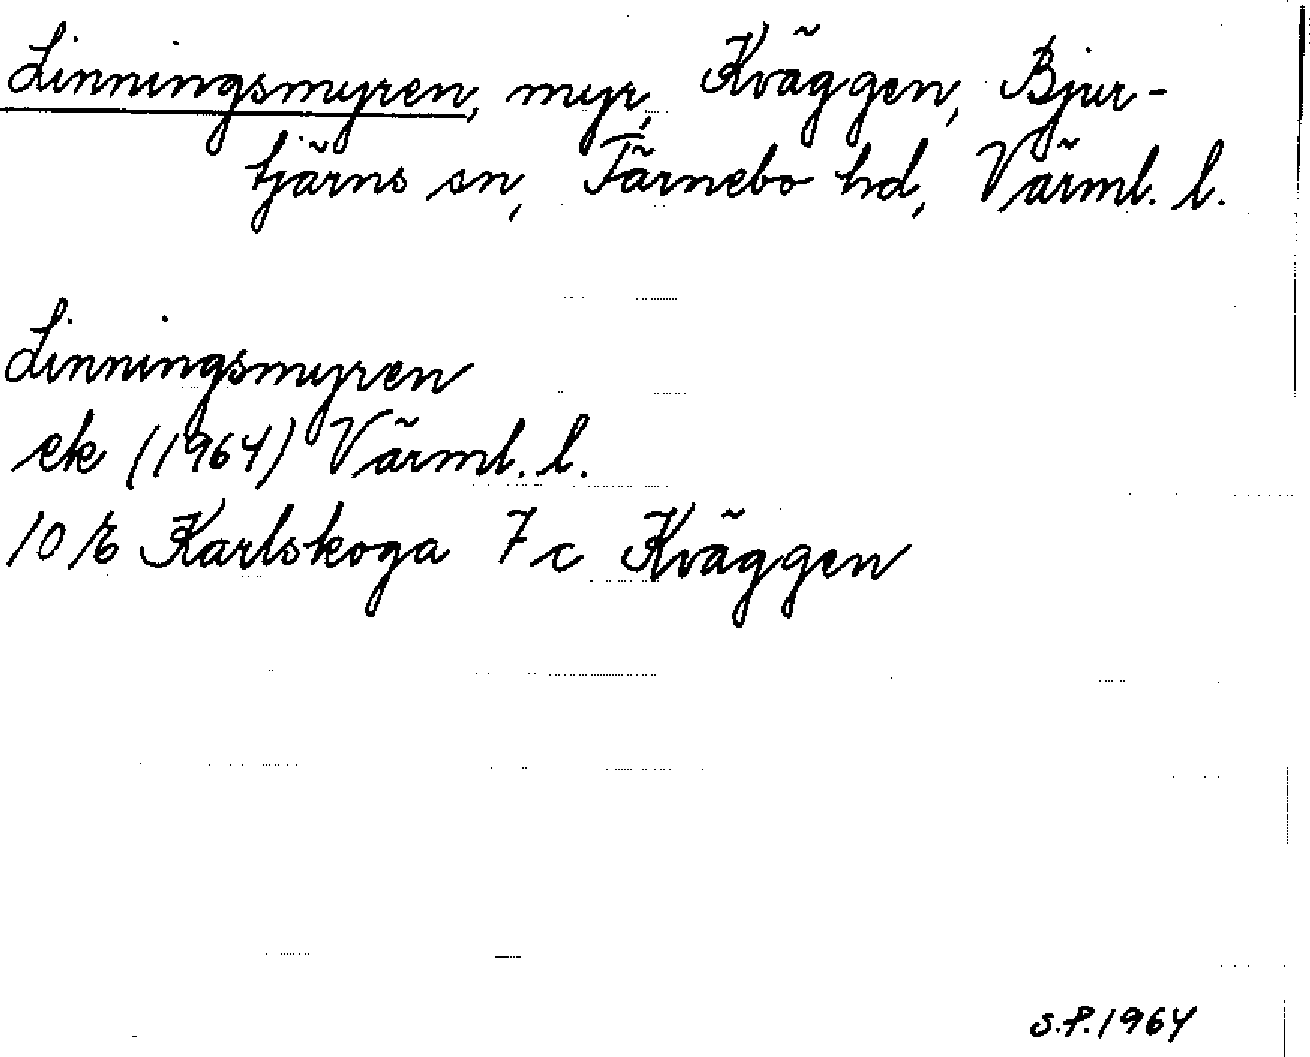 Linningsmyren, myr, Kväggen, Bjur-
tjärns sn, Färnebo hd, Värml. l.
Linningsmyren
ek (1964) Värml. l.
10 E Karlskoga 7 c Kväggen
S.P. 1964